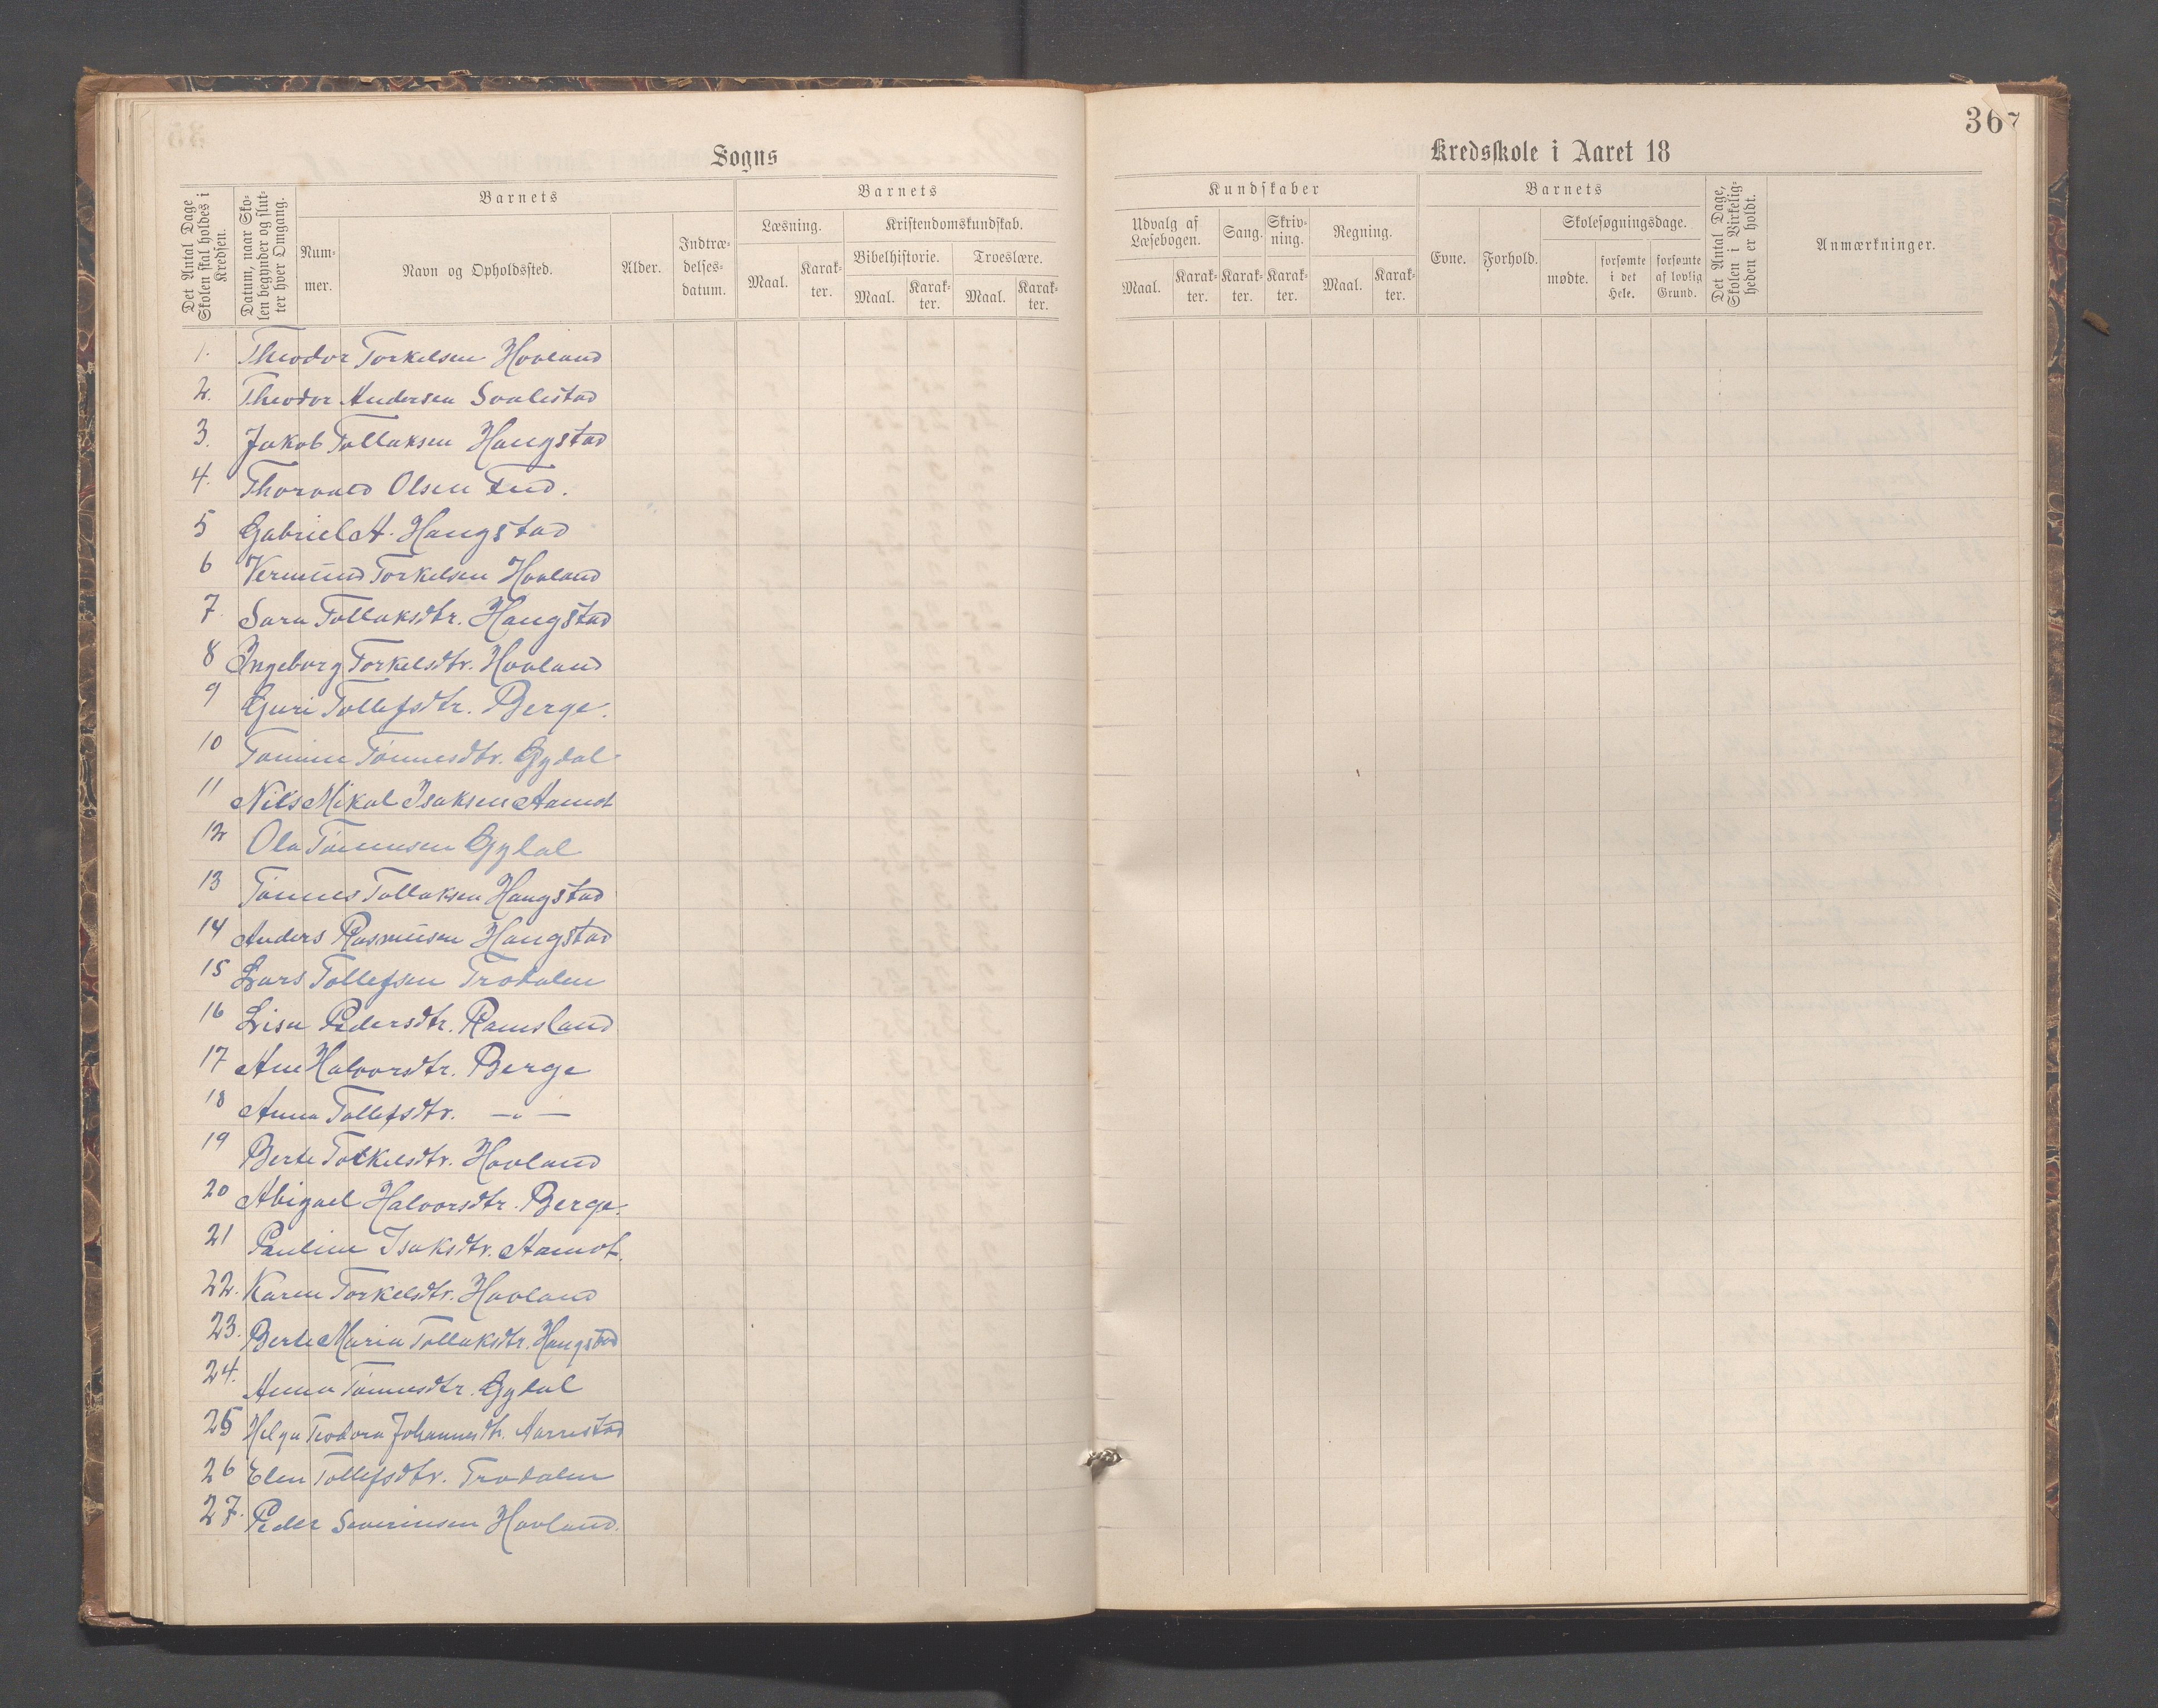 Sogns
Det Antal Dage Skolen skal holdes i Kredsen.
Datum, naar Skolen begynder og slutter hver Omgang.
Barnets
Nummer.
Navn og Opholdssted.
Alder.
Indtrædelsesdatum.
Barnets
Læsning.
Maal.
Karakter.
Kristendomskundskab.
Bibelhistorie.
Maal.
Karakter.
Troeslære.
Maal.
Karakter.
1. Theodor Torkelsen Hovland
2. Theodor Andersen Svalestad
3. Jakob Tollaksen Haugstad
4. Thorvald Olsen Eud.
5 Gabriel A. Haugstad
6 Vermund Torkelsen Hovland
7. Sara Tollaksdtr. Haugstad
8 Ingeborg Torkelsdtr. Hovland
9 Guri Tollefsdtr. Berge.
10 Tomine Tønnesdtr. Gydal
11 Nils Mikal Isaksen Aamot
12 Ola Tønnesen Gydal
13 Tønnes Tollaksen Haugstad
14 Anders Rasmusen Haugstad
15 Lars Tollefsen Trodalen
16 Lisa Pedersdtr. Ramsland
17 Ane Halvorsdtr. Berge
18 Anna Tollefsdtr. —"—
19 Berte Torkelsdtr. Hovland
20 Abigael Halvorsdtr. Berge.
21 Pauline Isaksdtr. Aamot.
22. Karen Torkelsdtr. Hovland
23. Berte Maria Tollaksdtr. Haugstad
24. Anna Tønnesdtr. Gydal
25 Helga Teodora Johannesdtr. Aarrestad
26 Elen Tollefsdtr. Trodalen
27. Peder Severinsen Hovland.
367
Kredsskole i Aaret 18
Kundskaber
Udvalg af Læsebogen.
Maal.
Karakter.
Sang.
Karakter.
Skrivning.
Karakter.
Regning.
Maal.
Karakter.
Barnets
Evne.
Forhold.
Skolesøgningsdage.
mødte.
forsømte i det Hele.
forsømte af lovlig Grund.
Det Antal Dage, Skolen i Virkeligheden er holdt.
Anmærkninger.